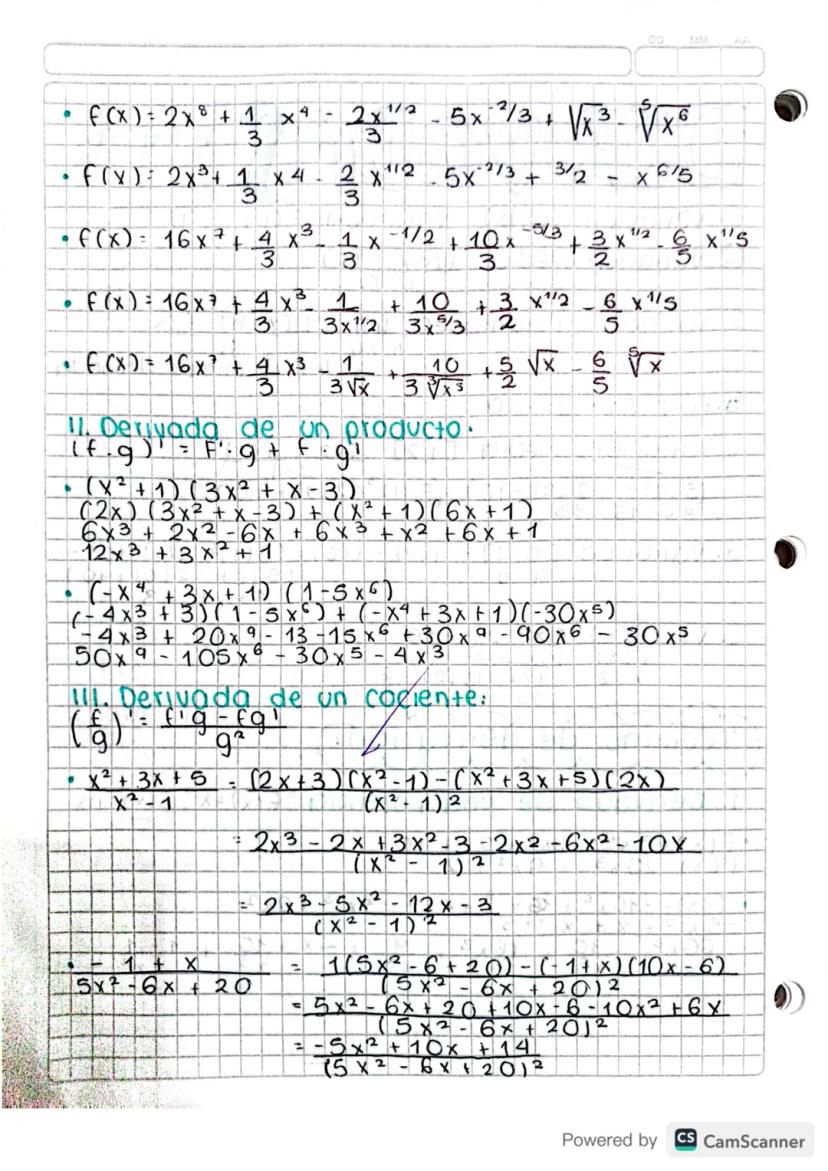 DD MM AA
• f(x) = 2x⁸ + 1/3 x⁴ - 2x^1/2 / 3 - 5x^-2/3 + √x³ - ⁵√x⁶
• f(x) = 2x³ + 1/3 x4 - 2/3 x^1/2 - 5x^-2/3 + ^3/2 - x^6/5
• f(x) = 16x⁷ + 4/3 x³ - 1/3 x^-1/2 + 10/3 x^-5/3 + 3/2 x^1/2 - 6/5 x^1/5
• f(x) = 16x⁷ + 4/3 x³ - 1/3x^1/2 + 10/3x^5/3 + 3/2 x^1/2 - 6/5 x^1/5
• f(x) = 16x⁷ + 4/3 x³ - 1/3√x + 10/3∛x⁵ + 5/2 √x - 6/5 ⁵√x
II. Derivada de un producto.
(f · g)' = F' · g + f · g'
• (x² + 1) (3x² + x - 3)
(2x) (3x² + x - 3) + (x² + 1) (6x + 1)
6x³ + 2x² - 6x + 6x³ + x² + 6x + 1
12x³ + 3x² + 1
• (-x⁴ + 3x + 1) (1 - 5x⁶)
(-4x³ + 3) (1 - 5x⁶) + (-x⁴ + 3x + 1) (-30x⁵)
-4x³ + 20x⁹ - 13 - 15x⁶ + 30x⁹ - 90x⁶ - 30x⁵
50x⁹ - 105x⁶ - 30x⁵ - 4x³
III. Derivada de un cociente:
(f/g)' = f'g - fg' / g²
• x² + 3x + 5 / x² - 1 = (2x + 3) (x² - 1) - (x² + 3x + 5) (2x) / (x² - 1)²
= 2x³ - 2x + 3x² - 3 - 2x² - 6x² - 10x / (x² - 1)²
= 2x³ - 5x² - 12x - 3 / (x² - 1)²
• - 1 + x / 5x² - 6x + 20 = 1(5x² - 6 + 20) - (-1 + x) (10x - 6) / (5x² - 6x + 20)²
= 5x² - 6x + 20 + 10x - 6 - 10x² + 6x / (5x² - 6x + 20)²
= -5x² + 10x + 14 / (5x² - 6x + 20)²
Powered by CS CamScanner